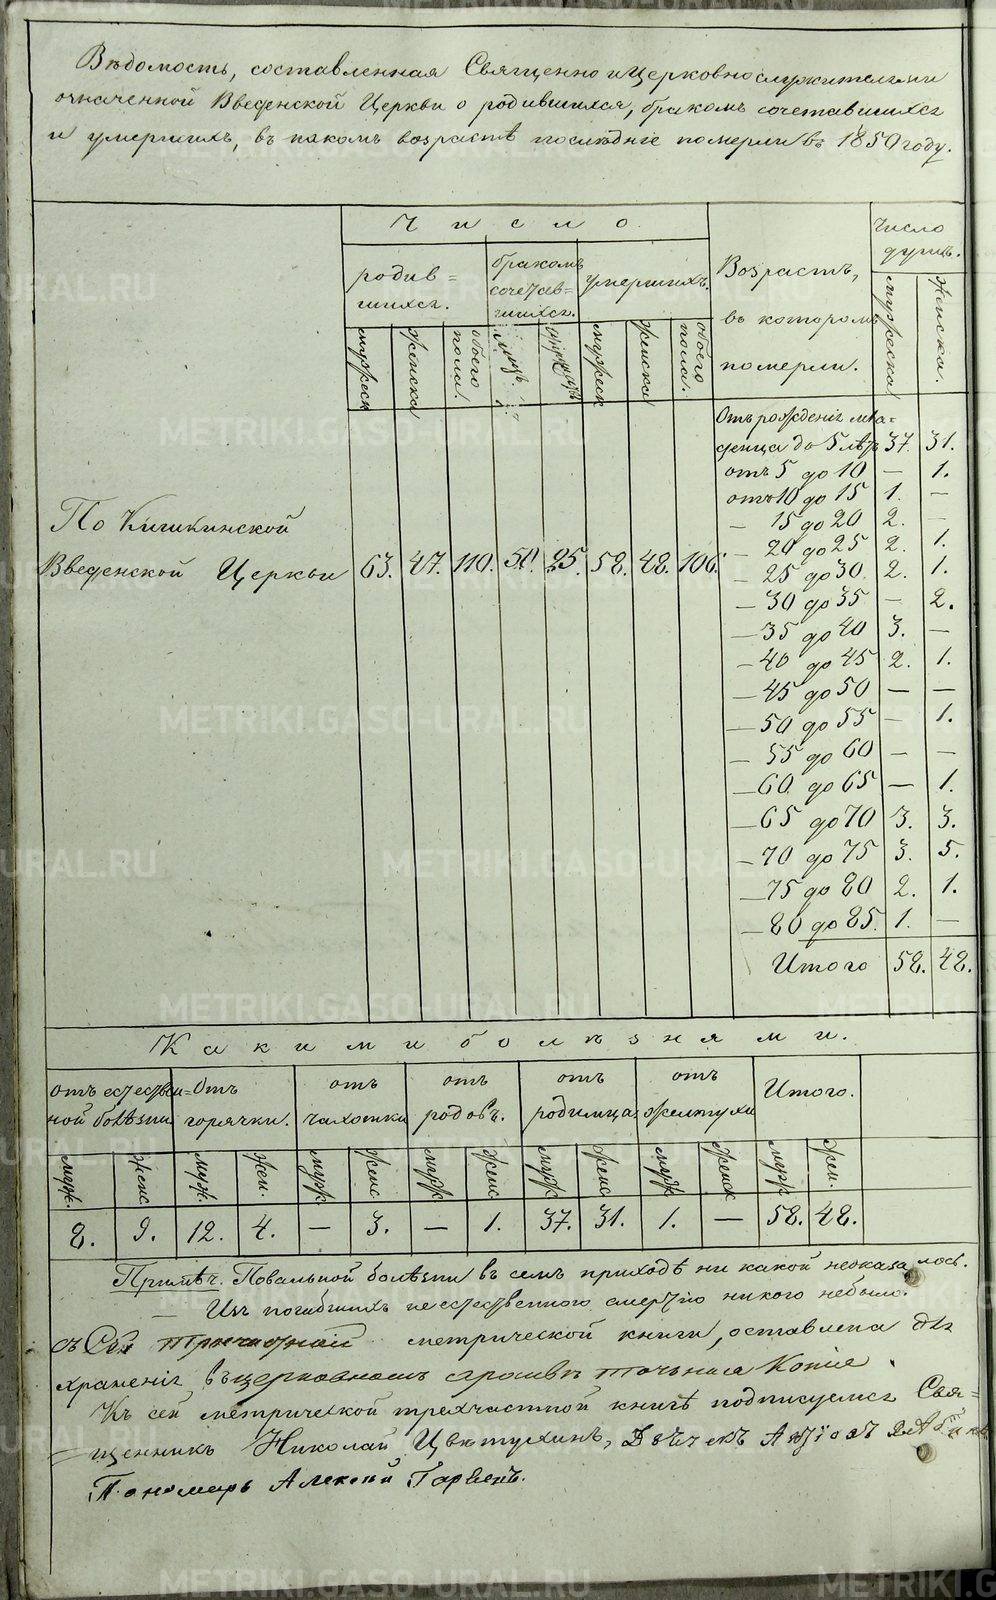 Вѣдомость, составленная Священно и Церковнослужителями
означенной Введенской Церкви о родившихся, бракомъ сочетавшихся
и умершихъ, въ какомъ возрастѣ послѣдніе померли въ 1850 году.
Число
родив=
шихся.
бракомъ
сочетав=
шихся.
умершихъ.
Возрастъ,
въ которомъ
померли.
Число
душъ.
мужеска
женска.
мужеск
женска
обоего
пола.
мужеск
женска
обоего
пола.
По Кишкинской
Введенской Церкви 63. 47. 110. 50. 25. 58. 48. 106.
Отъ рожденія мла=
денца до 5 лѣтъ 37. 31.
отъ 5 до 10 — 1.
отъ 10 до 15 1. —
— 15 до 20 2. —
— 20 до 25 2. 1.
— 25 до 30 2. 1.
— 30 до 35 — 2.
— 35 до 40 3. —
— 40 до 45 2. 1.
— 45 до 50 — —
— 50 до 55 — 1.
— 55 до 60 — —
— 60 до 65 — 1.
— 65 до 70 3. 3.
— 70 до 75 3. 5.
— 75 до 80 2. 1.
— 80 до 85. 1. —
Итого 58. 48.
Какими болѣзнями.
отъ естествен=
ной болѣзни
Отъ
горячки.
отъ
чахотки
отъ
родовъ.
отъ
родимца
отъ
желтухи
Итого.
муж. женс. муж. жен. муж. женс. муж. женс. муж. женс. муж. женск муж. жен.
8. 9. 12. 4. — 3. — 1. 37. 31. 1. — 58. 48.
Примѣч. Повальной болѣзни въ семъ приходѣ ни какой неоказалось.
— Изъ погибшихъ неестественного смертію никого небыло.
съ Сей метрической книги, оставлена для
храненія въ церковномъ архивѣ точная Копія.
Къ сей метрической трехчастной книгѣ подписуемся Свя=
щенникъ Николай Цвѣтухинъ,
Пономарь Алексій
METRIKI.GASO-URAL.RU